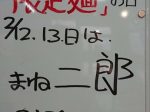 限定麺」のお
3/2.13日は、
まね二郎